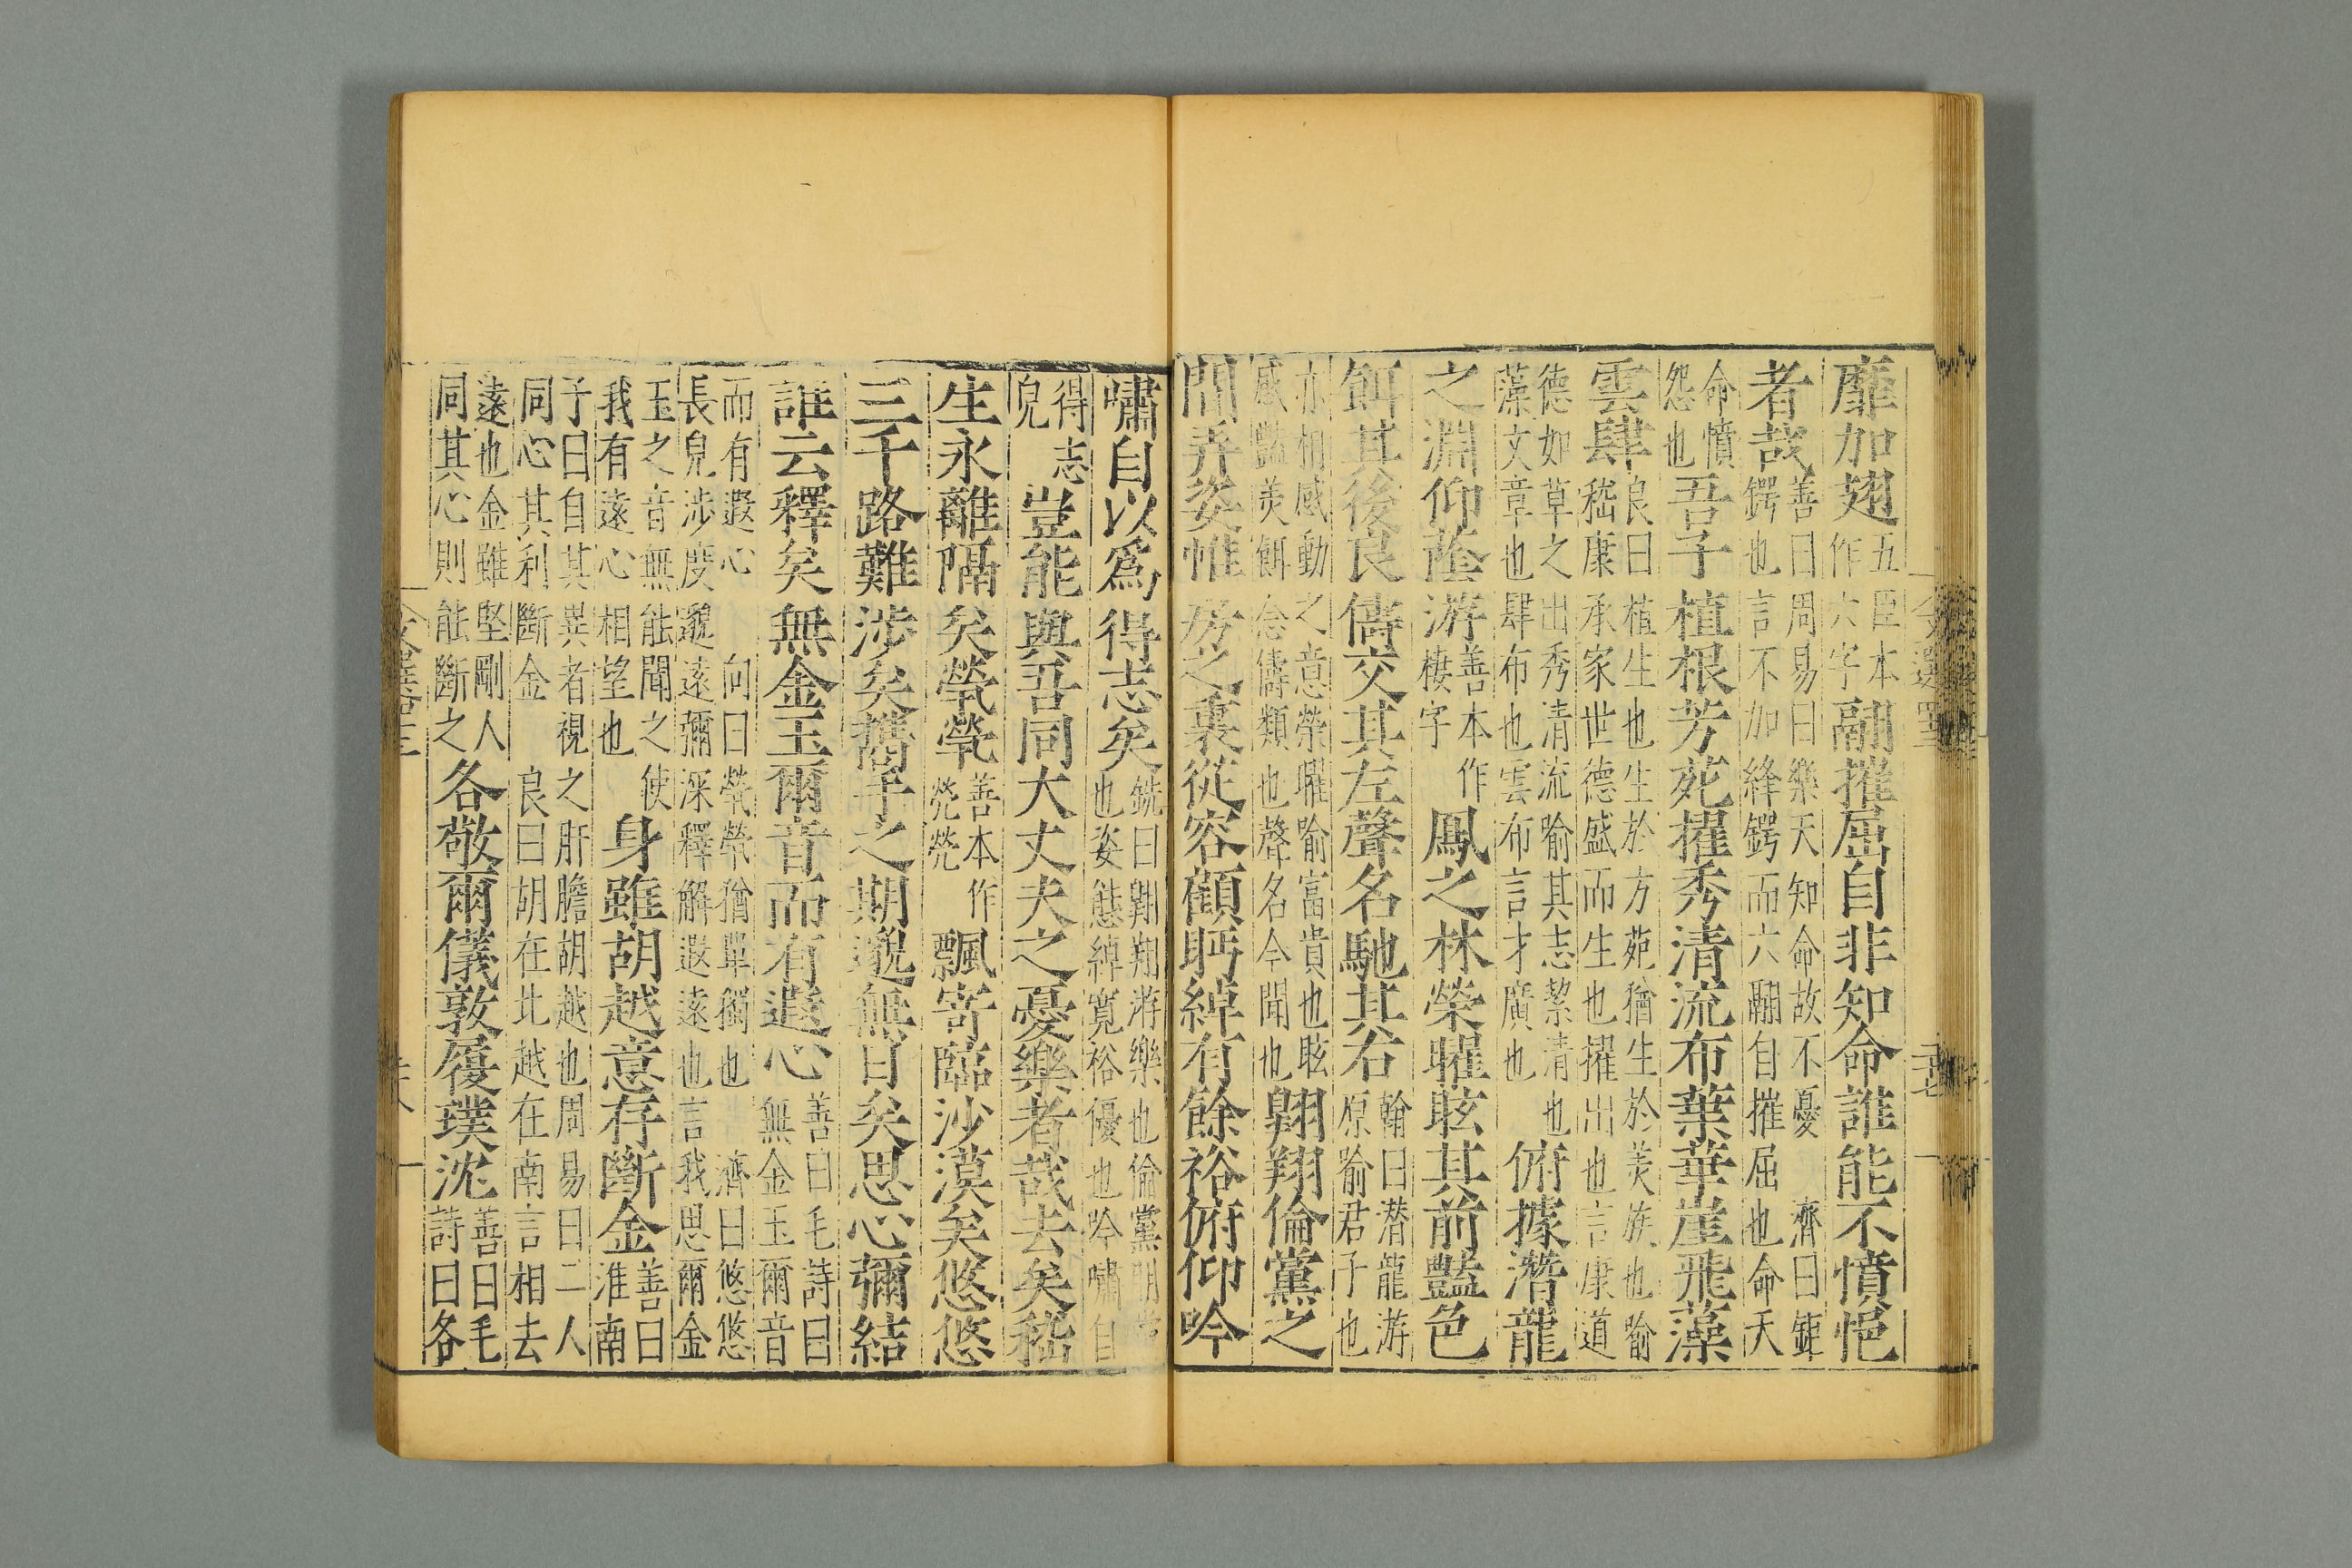 靡加翅五臣本作六字翮摧屈自非知命誰能不憤悒
者哉善曰周易曰樂天知命故不憂濟曰鍾鍔也言不加絳鍔而六翮自摧屈也命天
命憤怨也吾子植根芳苑擢秀清流布葉華崖飛藻
雲肆良曰植生也生於方苑猶生於美族也喻嵇康承家世德盛而生也擢出也言康道
德如草之出秀清流喻其志絜清也藻文章也肆布也雲布言才廣也俯據潛龍
之淵仰蔭游善本作棲字鳳之林榮曜眩其前豔色
餌其後良儔交其左聲名馳其右翰曰潛龍游原喻君子也
亦相感動之意榮曜喻富貴也眩惑豔美餌念儔類也聲名令聞也翱翔倫黨之
間弄姿帷房之裏從容顧眄綽有餘裕俯仰吟
嘯自以爲得志矣銑曰翱翔游樂也倫黨朋也姿態綽寬裕優也吟嘯自
得志皃豈能與吾同大丈夫之憂樂者哉去矣嵇
生永離隔矣煢煢善本作焭焭飄寄臨沙漠矣悠悠
三千路難涉矣攜手之期邈無日矣思心彌結
誰云釋矣無金玉爾音而有遐心善曰毛詩曰無金玉爾音
而有遐心向曰煢煢猶單獨也濟曰悠悠長皃涉度邈遠彌深釋解遐遠也言我思爾金
玉之音無能聞之使我有遠心相望也身雖胡越意存斷金善曰淮南
子曰自其異者視之肝膽胡越也周易曰二人同心其利斷金良曰胡在北越在南言相去
遠也金雖堅剛人同其心則能斷之各敬爾儀敦履璞沈善曰毛詩曰各